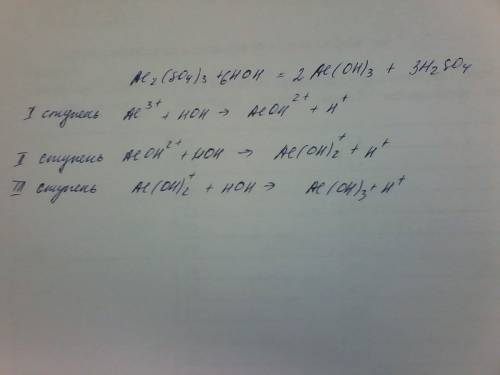 Al₂(SO₄)₃ + 6HOH = 2 Al(OH)₃ + 3H₂SO₄
I ступень Al³⁺ + HOH → AlOH²⁺ + H⁺
II ступень AlOH²⁺ + HOH → Al(OH)₂⁺ + H⁺
III ступень Al(OH)₂⁺ + HOH → Al(OH)₃ + H⁺